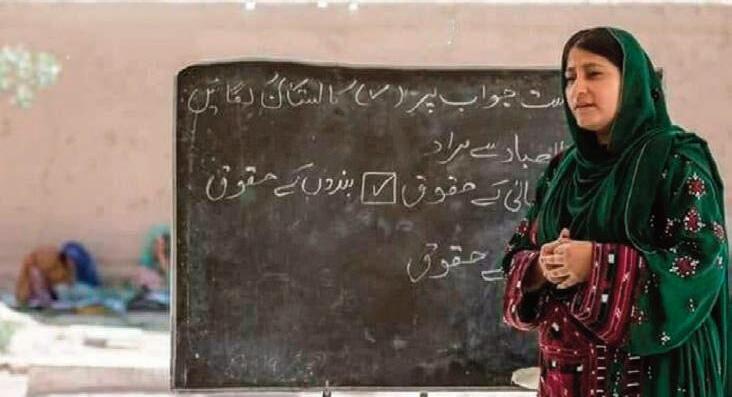 ست جواب پر (✓) کا نشان لگائیں
العباد سے مراد
ائی کے حقوق ☑ بندوں کے حقوق
کے حقوق